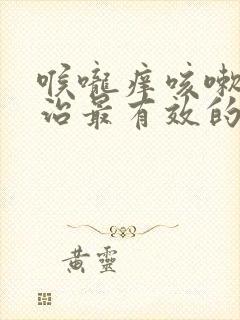 喉嚨痒咳嗽
治最有效的
黄靈